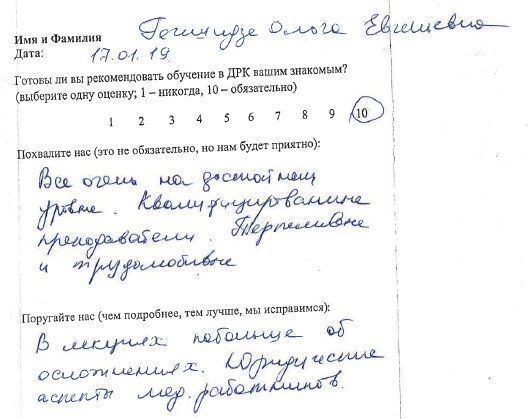 Имя и Фамилия Гегешидзе Ольга Евгеневна
Дата: 17.01.19
Готовы ли вы рекомендовать обучение в ДРК вашим знакомым?
(выберите одну оценку; 1 – никогда, 10 – обязательно)
1 2 3 4 5 6 7 8 9 10
Похвалите нас (это не обязательно, но нам будет приятно):
Все очень на достойном
уровне. Квалифицированные
преподаватели. Терпеливые
и трудолюбивые
Поругайте нас (чем подробнее, тем лучше, мы исправимся):
В лекциях побольше об
осложнениях. Юридические
аспекты мед. работников.